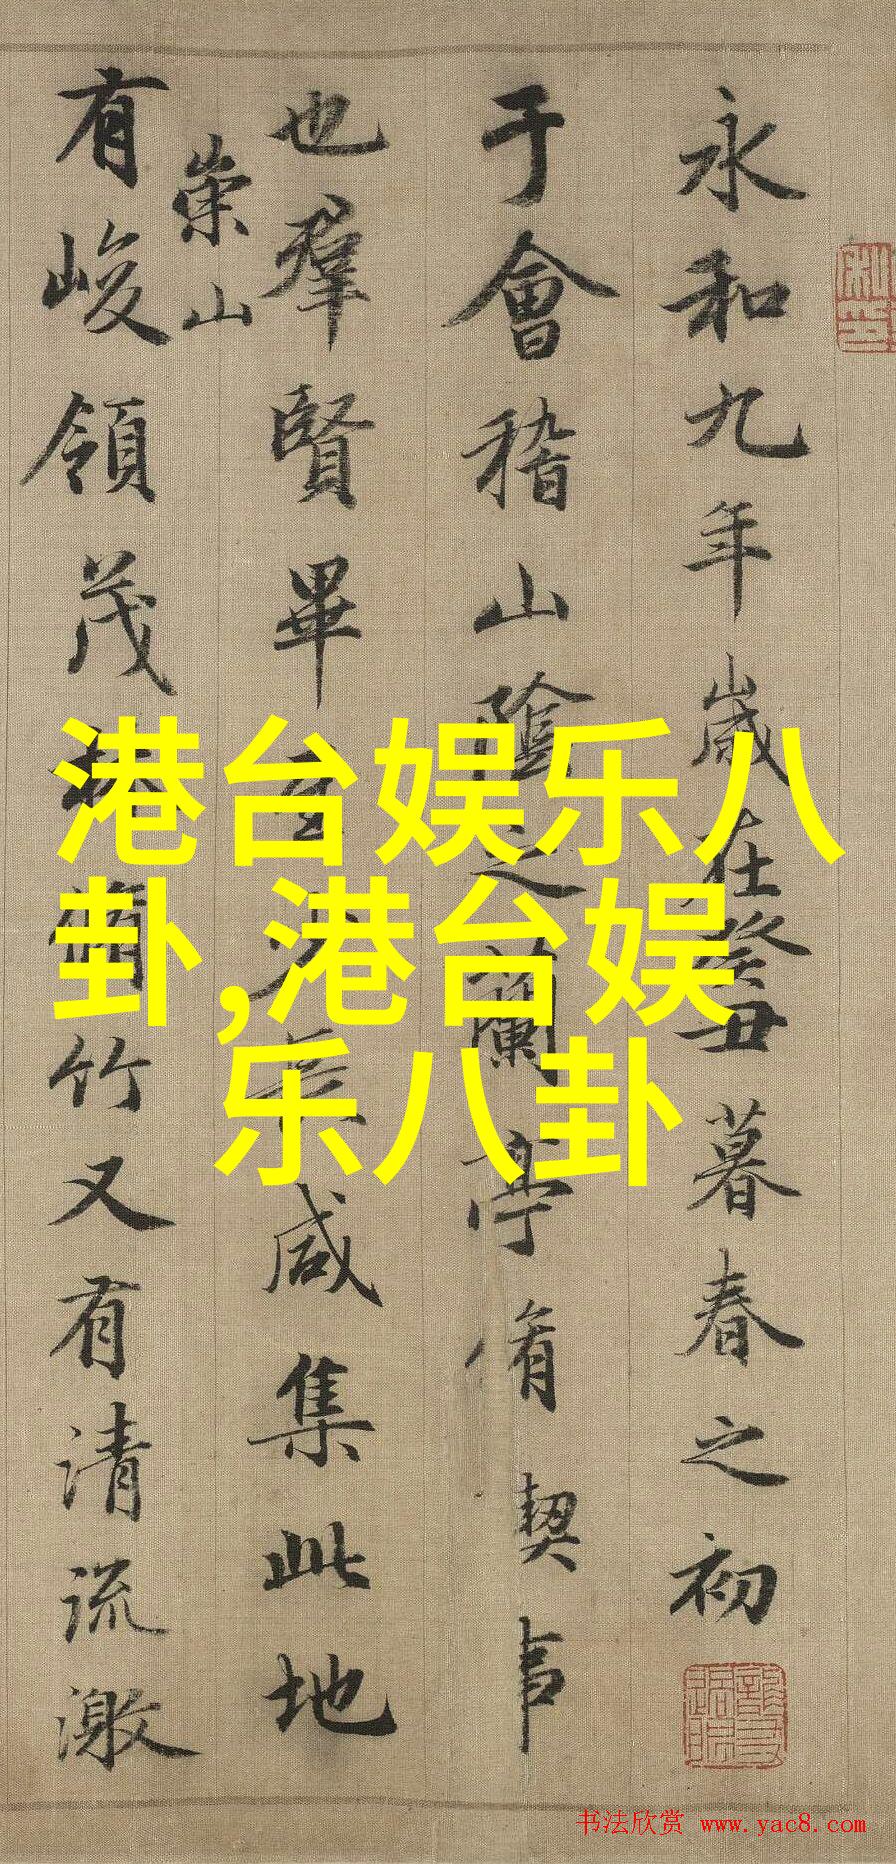 永和九年歲在癸丑暮春之初
于會稽山陰之蘭亭脩稧事
也羣賢畢至少長咸集此地
有崇山峻領茂林脩竹又有清流激
港台娱乐八
卦,港台娱
乐八卦
书法欣赏 www.yac8.com